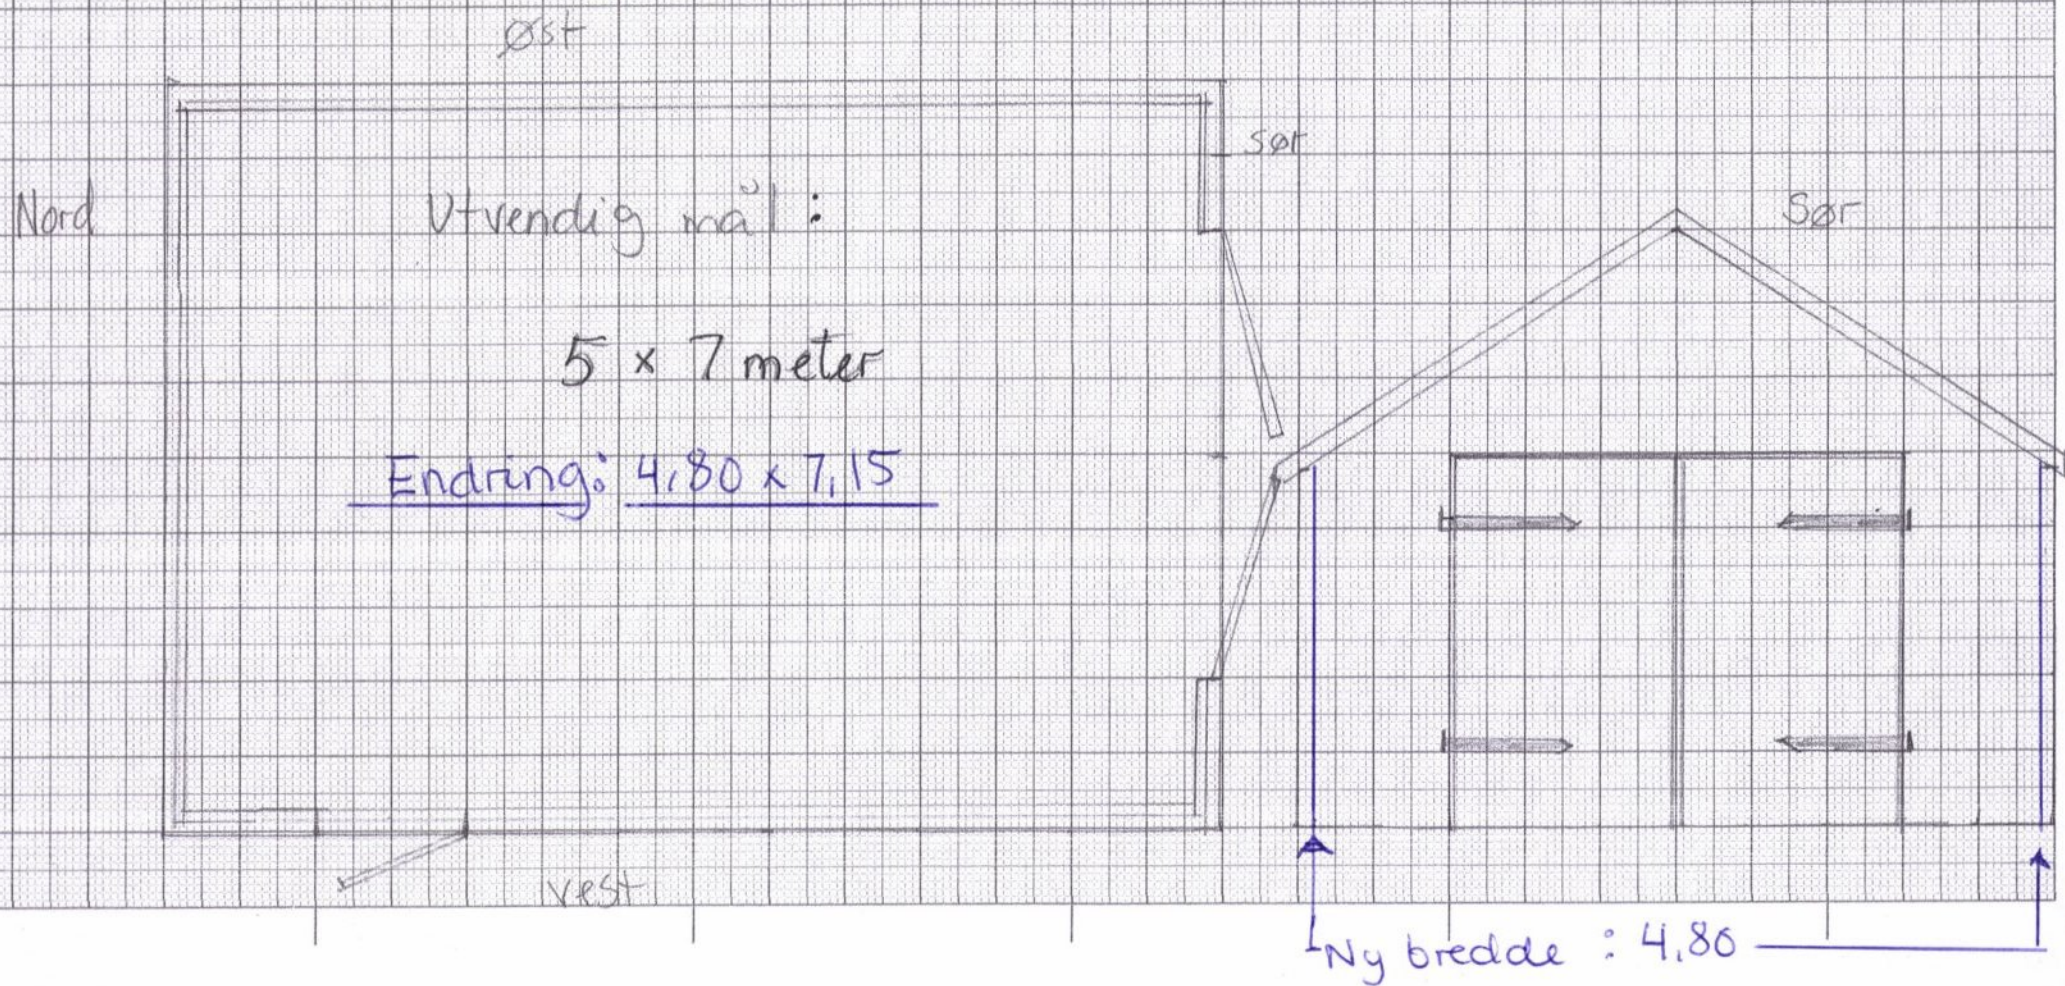 Øst
Sør
Nord
Utvendig mål :
Sør
5 x 7 meter
Endring: 4,80 x 7,15
vest
Ny bredde : 4,80